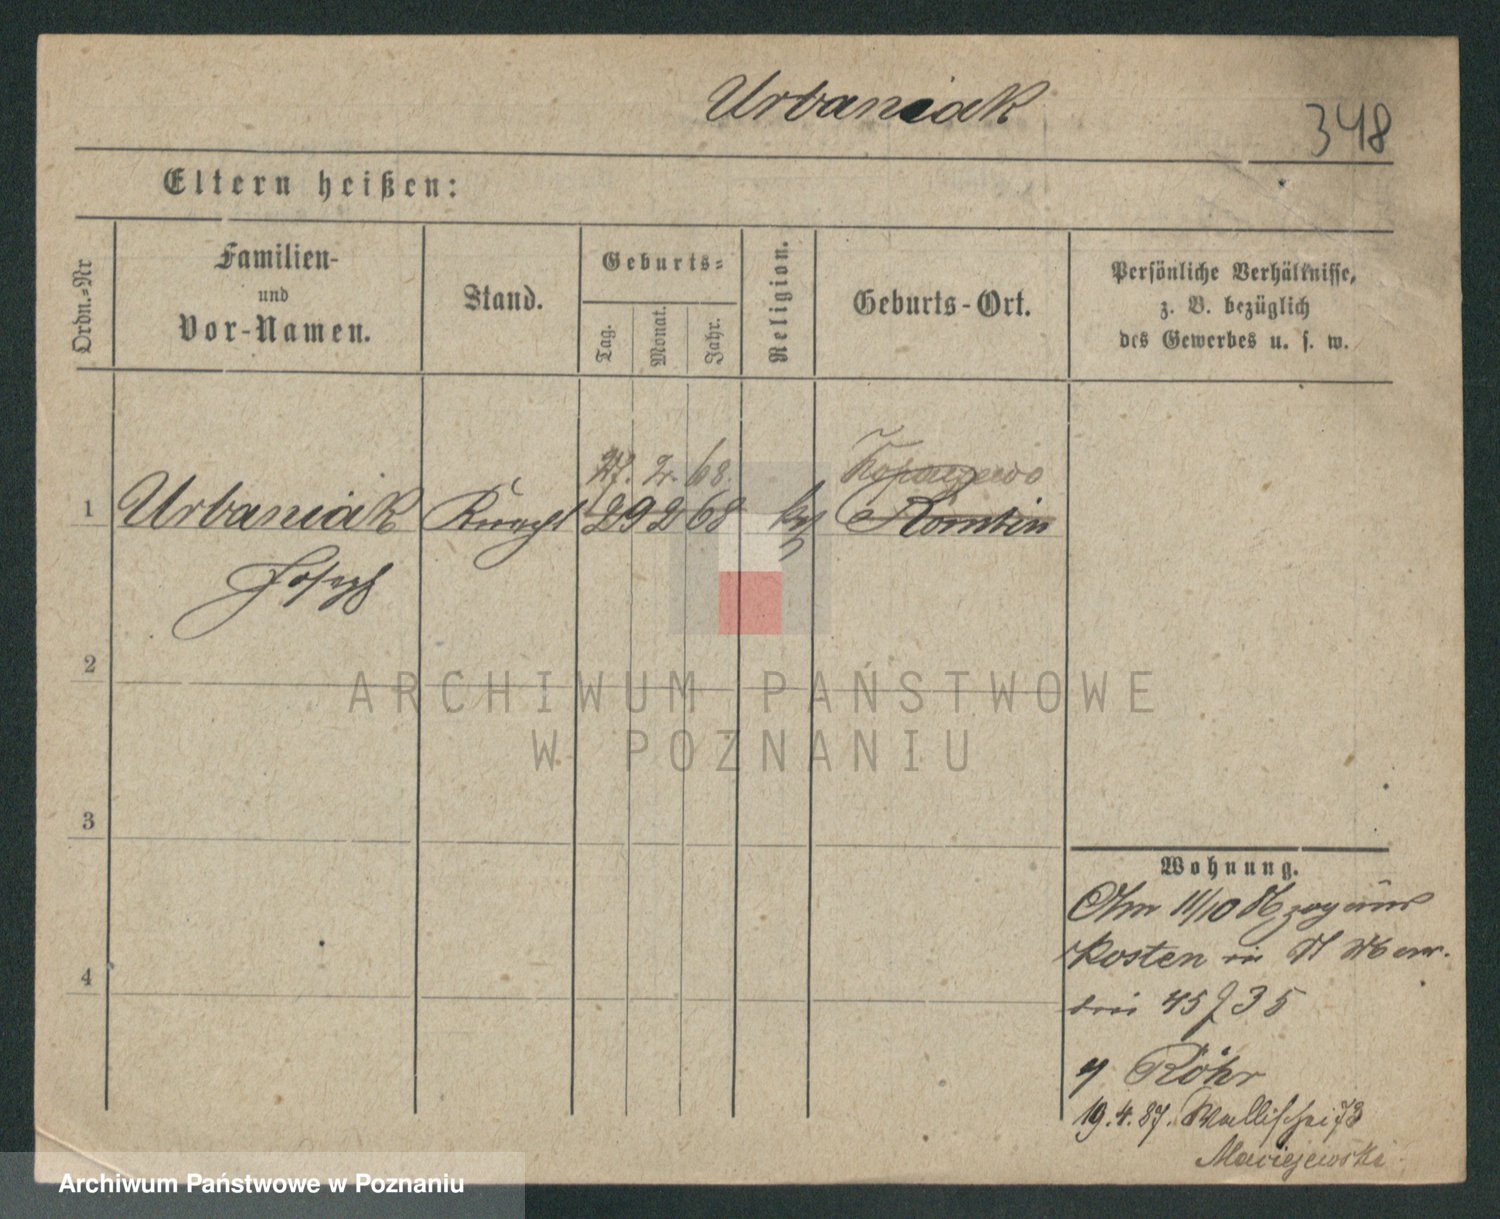 Urbaniak
348
Eltern heißen:
Ordn.=Nr
Familien-
und
Vor-Namen.
Stand.
Geburts=
Tag.
Monat.
Jahr.
Religion.
Geburts-Ort.
Persönliche Verhältnisse,
z. B. bezüglich
des Gewerbes u. s. w.
27. 2. 68.
1 Urbaniak Knecht 29 2 68 kth Komtin
Joseph
2
3
4
ARCHIWUM PAŃSTWOWE
W POZNANIU
Wohnung.
11/10 86
Kosten in
45 35
Röhr
19.4.87. Wallischei 73
Maciejewski
Archiwum Państwowe w Poznaniu